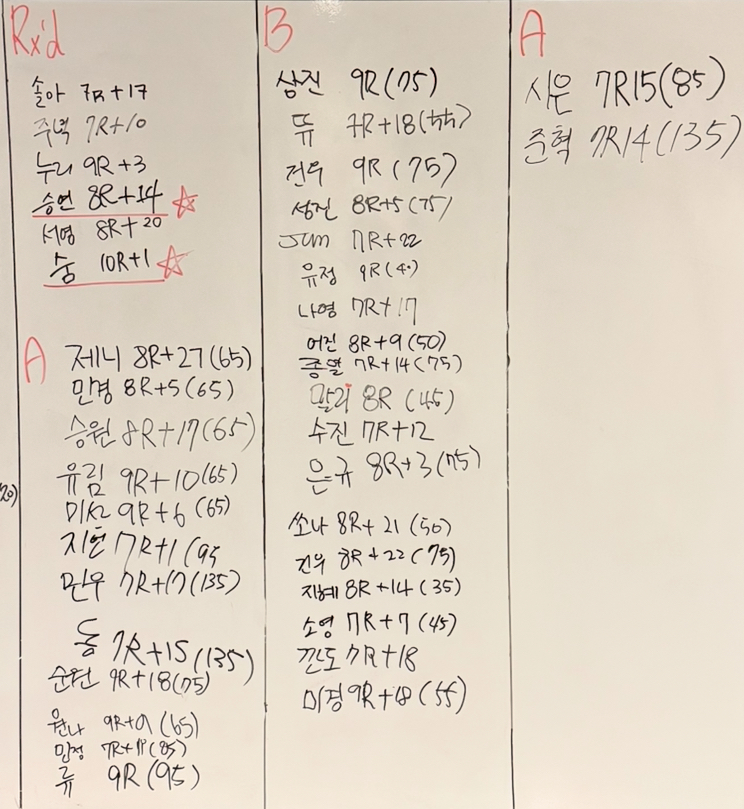 Rx'd
솔아 7R+17
주녁 7R+10
누리 9R+3
승연 8R+14
서영 8R+20
숨 10R+1
A
제니 8R+27(65)
민경 8R+5(65)
승원 8R+17(65)
유림 9R+10(65)
9R+6 (65)
7R+1(95
민우 7R+17(135)
돔 7R+15(135)
9R+18(75)
(65)
(85)
류 9R(95)
B
상진 9R(75)
뜌
건우 9R(75)
성진 8R+5(75)
Jum 7R+22
유정 9R(40)
나영 7R+17
어진 8R+9(50)
종열 7R+14(75)
말리 8R (45)
수진 7R+12
은규 8R+3(75)
쏘나 8R+21(50)
건우 8R+22(75)
지혜 8R+14(35)
소영 7R+7(45)
깐도 7R+18
미경 9R+18(55)
A
시은 7R15(85)
준혁 7R14(135)